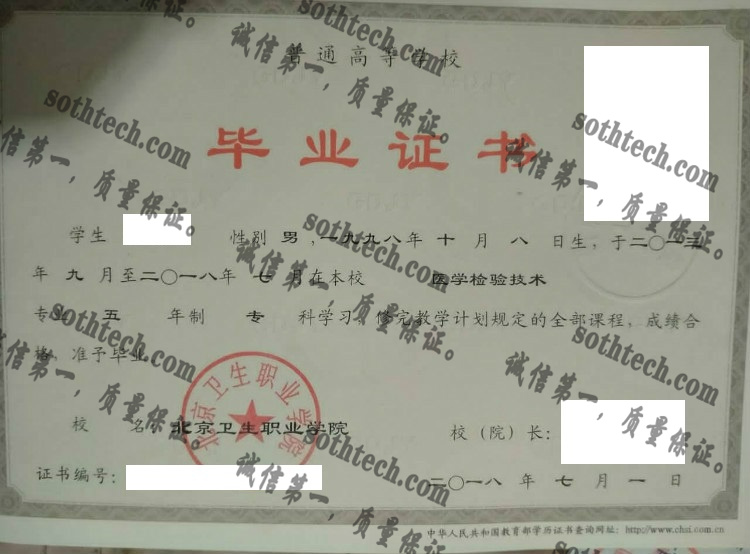 普通高等学校
毕业证书
学生 性别 男 ,一九九八年 十 月 八 日生，于二〇一三
年 九 月至二〇一八年 七 月在本校 医学检验技术
专业 五 年制 专 科学习，修完教学计划规定的全部课程，成绩合
格，准予毕业
北京卫生职业学院
校 名 北京卫生职业学院 校（院）长：
证书编号： 二〇一八 年 七 月 一 日
中华人民共和国教育部学历证书查询网址：http://www.chsi.com.cn
sothtech.com
诚信第一，质量保证。
sothtech.com
诚信第一，质量保证。
sothtech.com
诚信第一，质量保证。
sothtech.com
诚信第一，质量保证。
sothtech.com
诚信第一，质量保证。
sothtech.com
诚信第一，质量保证。
sothtech.com
诚信第一，质量保证。